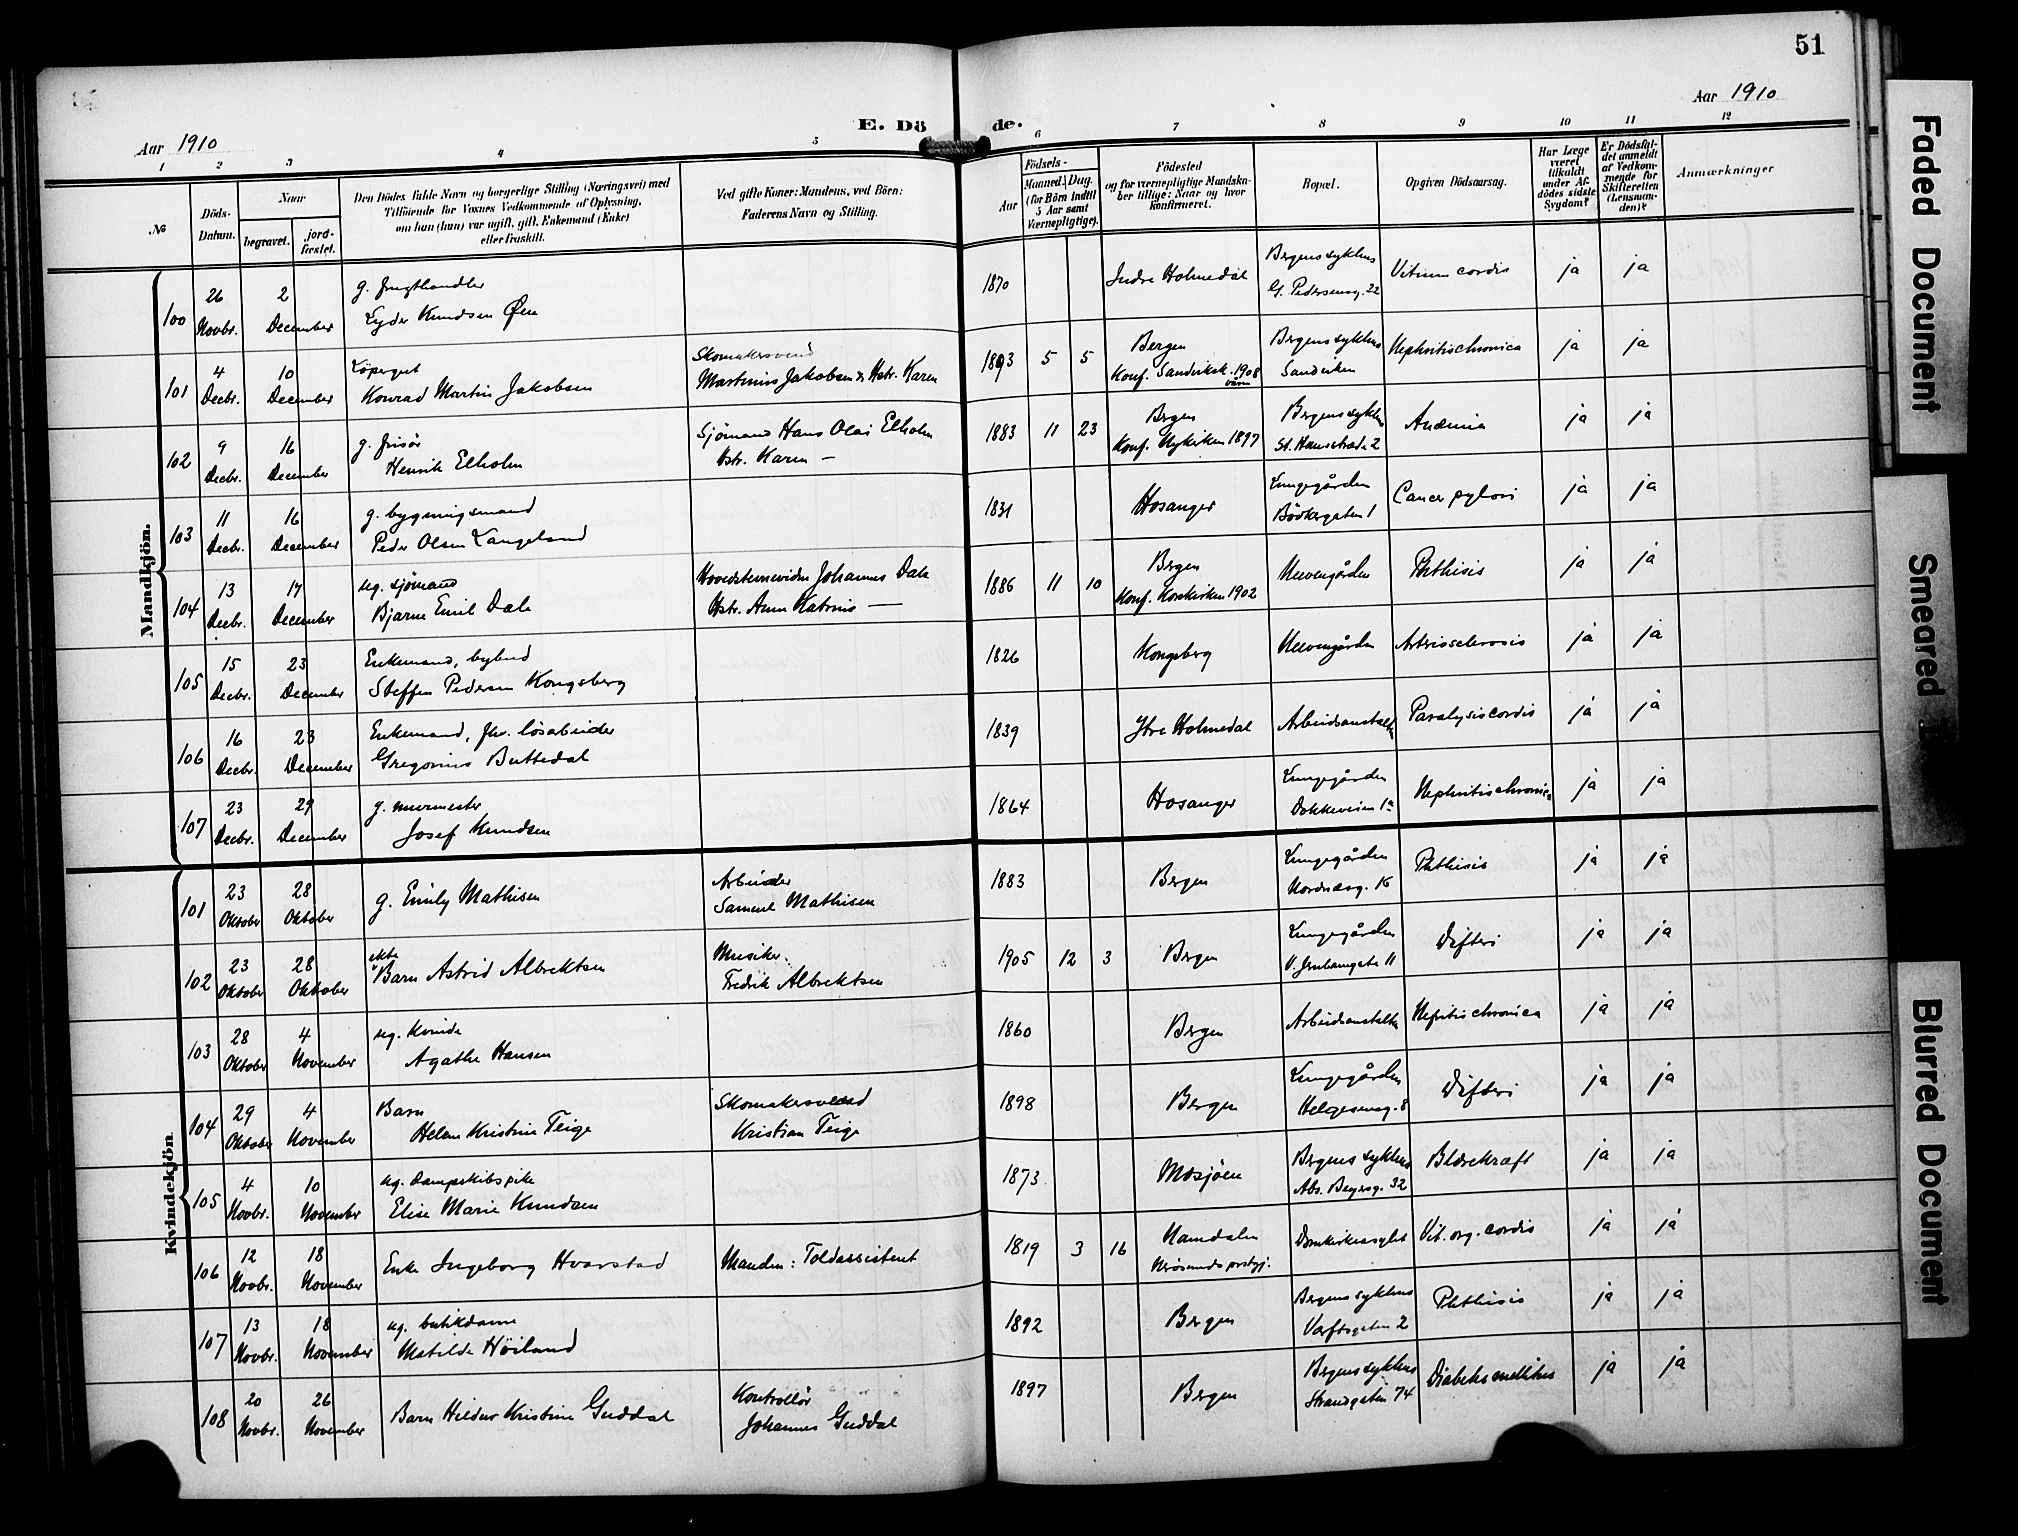 51
Aar 1910
Aar 1910
E. Dö de.
1 2 3 4 5 6 7 8 9 10 11 12
№
Döds-
Datum.
Naar
begravet.
jord-
fæstet.
Den Dödes fulde Navn og borgerlige Stilling (Næringsvei) med
Tilföiende for Voxnes Vedkommende af Oplysning,
om han (hun) var ugift, gift, Enkemand (Enke)
eller fraskilt.
Ved gifte Koner: Mandens, ved Börn:
Faderens Navn og Stilling.
Födsels-
Aar
Maaned. Dag.
(for Börn indtil
5 Aar samt
Værnepligtige).
Födested
og for værnepligtige Mandska-
ber tillige: Naar og hvor
konfirmeret.
Bopæl.
Opgiven Dödsaarsag.
Har Læge
været
tilkaldt
under Af-
dödes sidste
Sygdom?
Er Dödsfal-
det anmeldt
af Vedkom-
mende for
Skifteretten
(Lensman-
den)?
Anmærkninger
Mandkjön.
100 26 Novbr. 2 December g. frugthandler
Lyder Knudsen Øen
1870 Indre Holmedal Bergens sykehus
G. Pedersensg. 22 Vitium cordis ja ja
101 4 Decbr. 10 December Löpergut
Konrad Martin Jakobsen
Skomakersvend
Martinus Jakobsen & Hstr. Karen
1893 5 5 Bergen
Konf. Sandviksk. 1908
våren
Bergens sykehus
Sandviken Nephritis chronica ja ja
102 9 Decbr. 16 December g. frisör
Henrik Elholm
Sjömand Hans Olai Elholm
Hstr. Karen —
1883 11 23 Bergen
Konf. Nykirken 1897
Bergens sykehus
St. Hansstræde 2 Anæmia ja ja
103 11 Decbr. 16 December g. bygningsmand
Peder Olsen Langeland
1831 Hosanger Lungegården
Bödkergaten 1 Cancer pylori ja ja
104 13 Decbr. 17 December ug. sjömand
Bjarne Emil Dale
Johannes Dale
Hstr. Anna Katrine —
1886 11 10 Bergen
Konf. Korskirken 1902
Neevengården Phthisis ja ja
105 15 Decbr. 23 December Enkemand, bybud
Steffen Pedersen Kongsberg
1826 Kongsberg Neevengården Arteriosclerosis ja ja
106 16 Decbr. 23 December Enkemand, fhv. løsarbeider
Gregorius Buttedal
1839 Ytre Holmedal Arbeidsanstalten Paralysis cordis ja ja
107 23 Decbr. 29 December g. murmester
Josef Knudsen
1864 Hosanger Lungegården
Dokkeveien 1a Nephritis chronica ja ja
Kvindekjön
101 23 Oktober 28 Oktober g. Emily Mathisen
Arbeider
Samuel Mathisen
1883 Bergen Lungegården
Nordnæsg. 16 Phthisis ja ja
102 23 Oktober 28 Oktober ekte
Barn Astrid Albrektsen
Musiker
Fredrik Albrektsen
1905 12 3 Bergen Lungegården
V. Jernbanegate 11 Difteri ja ja
103 28 Oktober 4 November ug. kvinde
Agathe Hansen
1860 Bergen Arbeidsanstalten Nefritis chronica ja ja
104 29 Oktober 4 November Barn
Helene Kristine Teige
Skomakersvend
Kristian Teige
1898 Bergen Lungegården
Helgesensg. 8 Difteri ja ja
105 4 Novbr. 10 November ug. dampskibspike
Elise Marie Knudsen
1873 Mosjöen Bergens sykehus
Abs. Beyersg. 32 Blærekræft ja ja
106 12 Novbr. 18 November Enke Ingeborg Hvarstad
Manden: Toldassistent
1819 3 16 Namdalen
Nærösunds prstgj.
Domkirkeasylet Vit. org. cordis ja ja
107 13 Novbr. 18 November ug. butikdame
Matilde Höiland
1892 Bergen Bergens sykehus
Verftsgaten 2 Phthisis ja ja
108 20 Novbr. 26 November Barn Hildur Kristine Guddal
Kontrollör
Johannes Guddal
1897 Bergen Bergens sykehus
Strandgaten 74 Diabetes mellitus ja ja
Faded Document
Smeared
Blurred Document